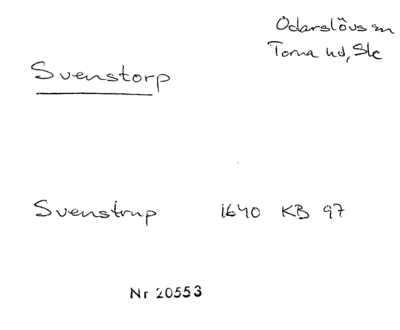 Odarslövs sn
Torna hd, Sk
Svenstorp
Svenstrup 1640 KB 97
Nr 20553